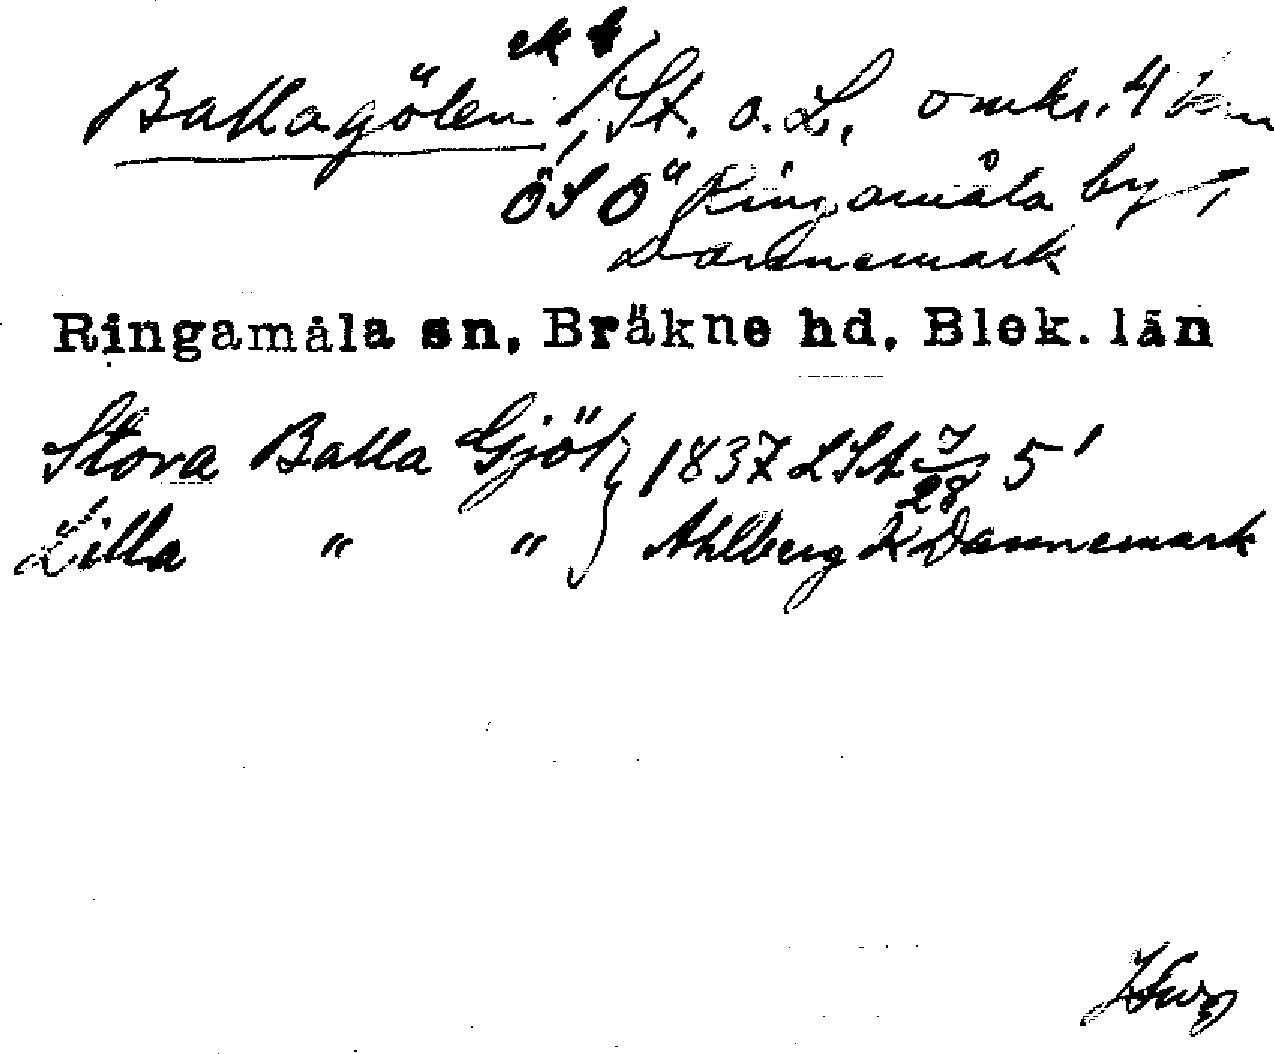 ek
Ballagölen, St. o. L. omkr. 4 km
ÖSÖ Ringamåla by,
Dannemark
Ringamåla sn, Bräkne hd, Blek. län
Stora Balla Gjöl } 1837 LSt 7/28 5'
Lilla " " } Ahlberg K Dannemark